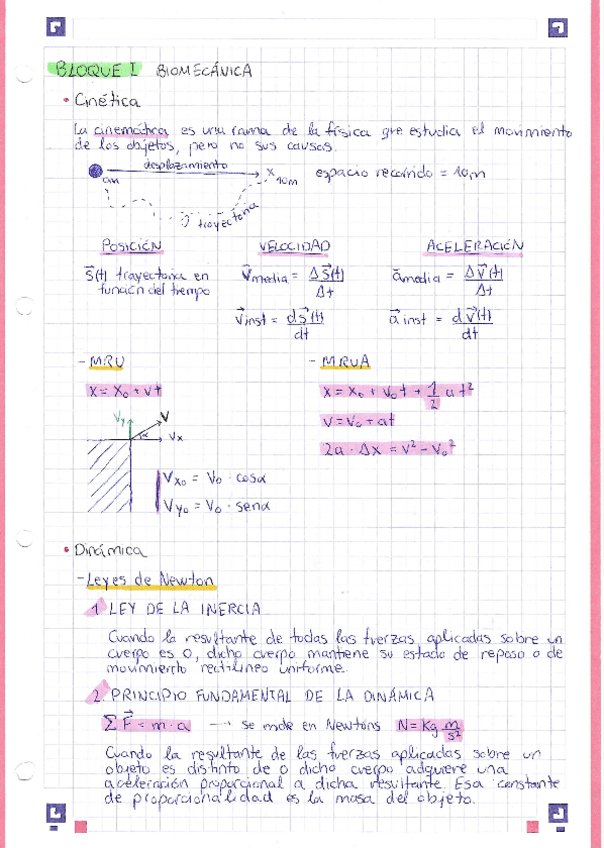 BLOQUE I BIOMECÁNICA
• Cinética
La cinemática es una rama de la física que estudia el movimiento
de los objetos, pero no sus causas.
desplazamiento
0m
x
10m
espacio recorrido = 10m
trayectoria
POSICIÓN VELOCIDAD ACELERACIÓN
S⃗(t) trayectoria en
función del tiempo
V⃗media = ΔS⃗(t)/Δt
a⃗media = ΔV⃗(t)/Δt
V⃗inst = dS⃗(t)/dt
a⃗ inst = dv⃗(t)/dt
- MRU
- MRUA
x = x₀ + vt
x = x₀ + v₀t + 1/2 at²
v = v₀ + at
2a · Δx = v² - v₀²
Vy
V
α
Vx
Vx₀ = V₀ · cosα
Vy₀ = V₀ · senα
• Dinámica
- Leyes de Newton
1. LEY DE LA INERCIA
Cuando la resultante de todas las fuerzas aplicadas sobre un
cuerpo es 0, dicho cuerpo mantiene su estado de reposo o de
movimiento rectilíneo uniforme.
2. PRINCIPIO FUNDAMENTAL DE LA DINÁMICA
Σ F⃗ = m · a → se mide en Newtons N = Kg m/s²
Cuando la resultante de las fuerzas aplicadas sobre un
objeto es distinto de 0 dicho cuerpo adquiere una
aceleración proporcional a dicha resultante. Esa constante
de proporcionalidad es la masa del objeto.